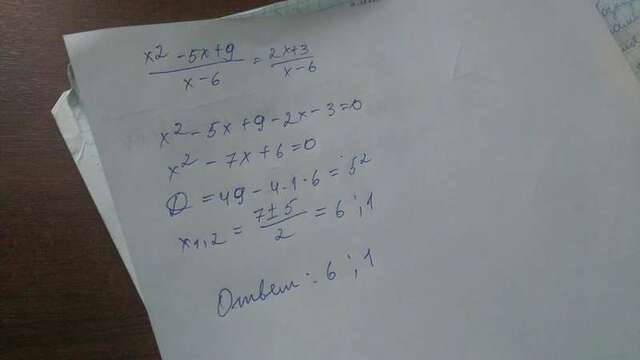 x² - 5x + 9 / x - 6 = 2x + 3 / x - 6
x² - 5x + 9 - 2x - 3 = 0
x² - 7x + 6 = 0
D = 49 - 4 · 1 · 6 = 5²
x₁,₂ = 7 ± 5 / 2 = 6 ; 1
Ответ : 6 ; 1